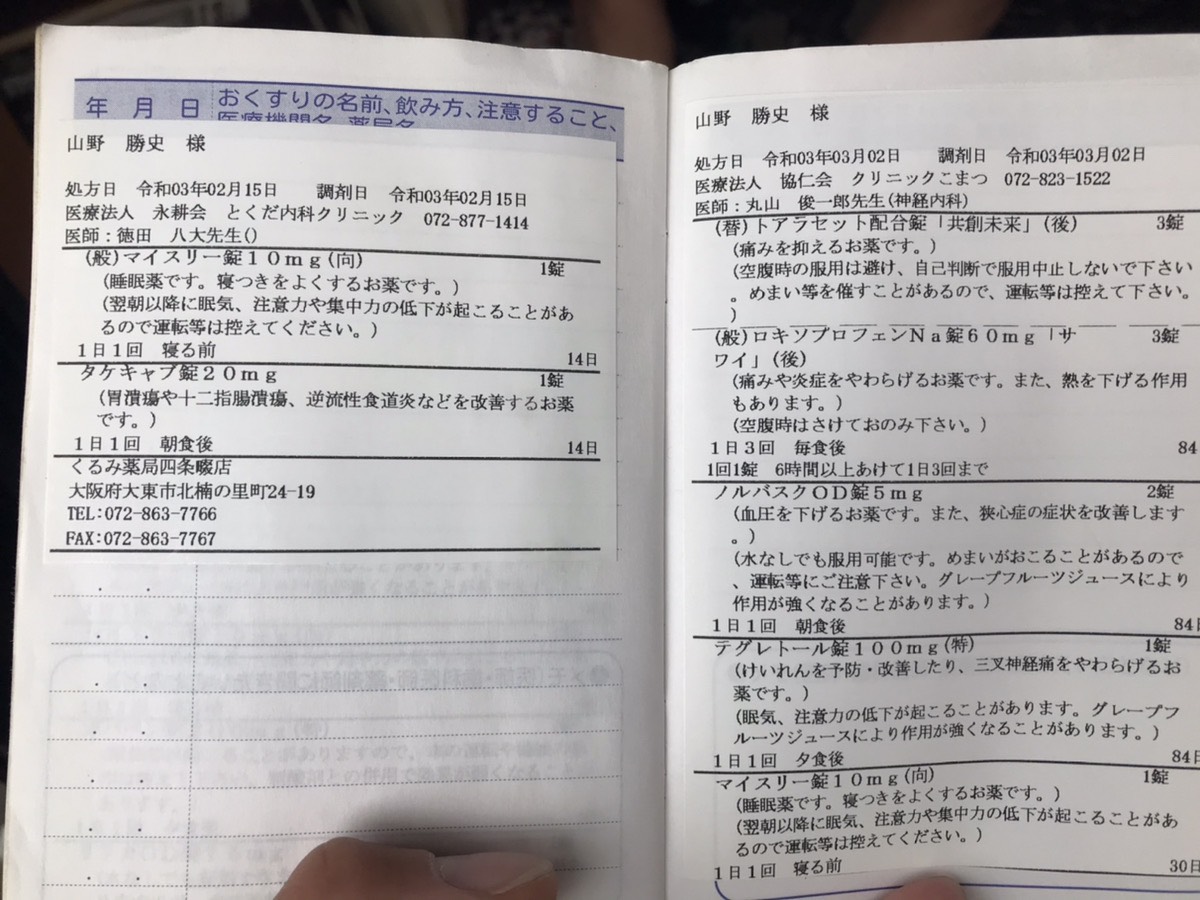 年 月 日 おくすりの名前、飲み方、注意すること、
医療機関名、薬局名
山野 勝史 様
処方日 令和03年02月15日 調剤日 令和03年02月15日
医療法人 永耕会 とくだ内科クリニック 072-877-1414
医師:徳田 八大先生()
(般)マイスリー錠10mg(向) 1錠
(睡眠薬です。寝つきをよくするお薬です。)
(翌朝以降に眠気、注意力や集中力の低下が起こることがあ
るので運転等は控えてください。)
1日1回 寝る前 14日
タケキャブ錠20mg 1錠
(胃潰瘍や十二指腸潰瘍、逆流性食道炎などを改善するお薬
です。)
1日1回 朝食後 14日
くるみ薬局四条畷店
大阪府大東市北楠の里町24-19
TEL:072-863-7766
FAX:072-863-7767
山野 勝史 様
処方日 令和03年03月02日 調剤日 令和03年03月02日
医療法人 協仁会 クリニックこまつ 072-823-1522
医師:丸山 俊一郎先生(神経内科)
(替)トアラセット配合錠「共創未来」(後) 3錠
(痛みを抑えるお薬です。)
(空腹時の服用は避け、自己判断で服用中止しないで下さい
。めまい等を催すことがあるので、運転等は控えて下さい。
)
(般)ロキソプロフェンNa錠60mg「サ 3錠
ワイ」(後)
(痛みや炎症をやわらげるお薬です。また、熱を下げる作用
もあります。)
(空腹時はさけておのみ下さい。)
1日3回 毎食後 84
1回1錠 6時間以上あけて1日3回まで
ノルバスクOD錠5mg 2錠
(血圧を下げるお薬です。また、狭心症の症状を改善します
。)
(水なしでも服用可能です。めまいがおこることがあるので
、運転等にご注意下さい。グレープフルーツジュースにより
作用が強くなることがあります。)
1日1回 朝食後 84日
テグレトール錠100mg(特) 1錠
(けいれんを予防・改善したり、三叉神経痛をやわらげるお
薬です。)
(眠気、注意力の低下が起こることがあります。グレープフ
ルーツジュースにより作用が強くなることがあります。)
1日1回 夕食後 84日
マイスリー錠10mg(向) 1錠
(睡眠薬です。寝つきをよくするお薬です。)
(翌朝以降に眠気、注意力や集中力の低下が起こることがあ
るので運転等は控えてください。)
1日1回 寝る前 30日